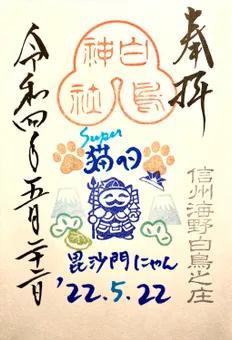 奉拝
白鳥神社
Super
猫の日
信州海野白鳥之庄
毘沙門にゃん
'22.5.22
令和四年五月二十二日